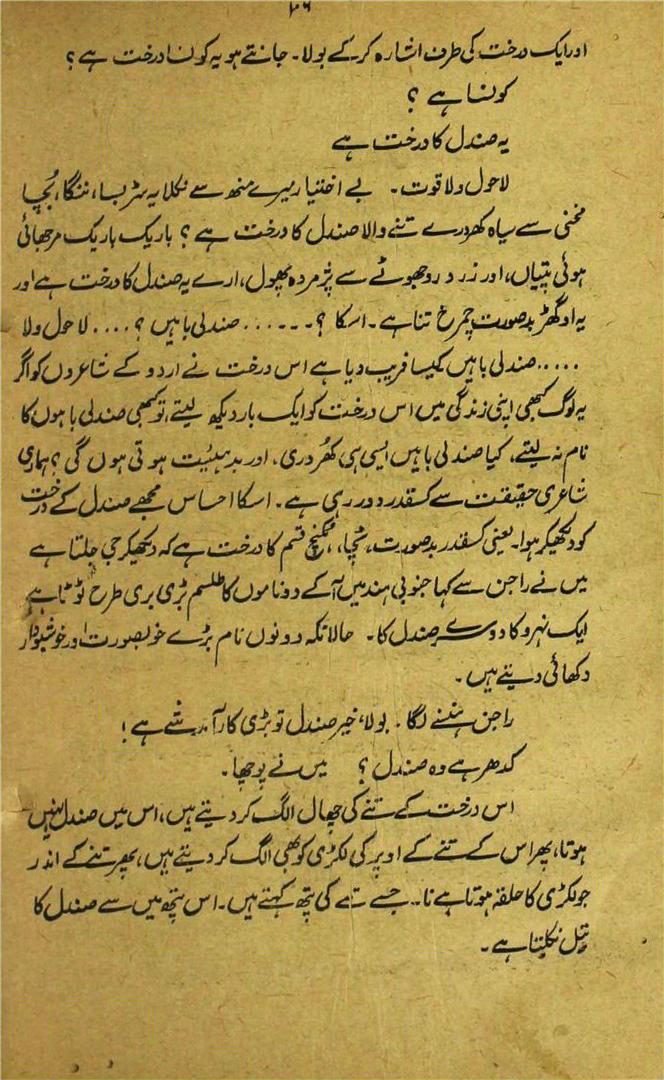 ۳۶
اور ایک درخت کی طرف اشارہ کر کے بولا۔ جانتے ہو یہ کونسا درخت ہے؟
کونسا ہے ؟
یہ صندل کا درخت ہے
لاحول ولا قوت۔ بے اختیار میرے منھ سے نکلا یہ سڑ بسا، ننگا، بُچا
مخنی سے سیاہ کھردرے تنے والا صندل کا درخت ہے؟ باریک باریک مرجھائی
ہوئی پتیاں، اور زرد رو جھوٹے سے پژمردہ پھول، ارے یہ صندل کا درخت ہے اور
یہ اوگھڑ بدصورت چمرخ تنا ہے۔ اسکا ؟۔..... صندلی باہیں ؟.... لا حول ولا
.....صندلی باہیں کیسا فریب دیا ہے اس درخت نے اردو کے شاعروں کو اگر
یہ لوگ کبھی اپنی زندگی میں اس درخت کو ایک بار دیکھ لیتے، تو کبھی صندلی باہوں کا
نام نہ لیتے، کیا صندلی باہیں ایسی ہی کھُردری، اور بدہیئیت ہوتی ہوں گی؟ ہماری
شاعری حقیقت سے کسقدر دور رہی ہے۔ اسکا احساس مجھے صندل کے درخت
کو دیکھکر ہوا۔ یعنی کسقدر بدصورت، بُچا، قسم کا درخت ہے کہ دیکھکر جی جلتا ہے
میں نے راجن سے کہا جنوبی ہند میں آ کے دو ناموں کا طلسم بڑی بری طرح ٹوٹتا ہے
ایک نہرو کا دوسرے صندل کا۔ حالانکہ دونوں نام بڑے خوبصورت اور خوشبودار
دکھائی دیتے ہیں۔
راجن ہنسنے لگا۔ بولا، خیر صندل تو بڑی کارآمد شئے ہے!
کدھر ہے وہ صندل ؟ میں نے پوچھا۔
اس درخت کے تنے کی چھال الگ کر دیتے ہیں، اس میں صندل نہیں
ہوتا، پھر اس کے تنے کے اوپر کی لکڑی کو بھی الگ کر دیتے ہیں، پھر تنے کے اندر
جو لکڑی کا حلقہ ہوتا ہے نا۔۔ جسے تنے کی پتھ کہتے ہیں۔ اس پتھ میں سے صندل کا
تیل نکلتا ہے۔